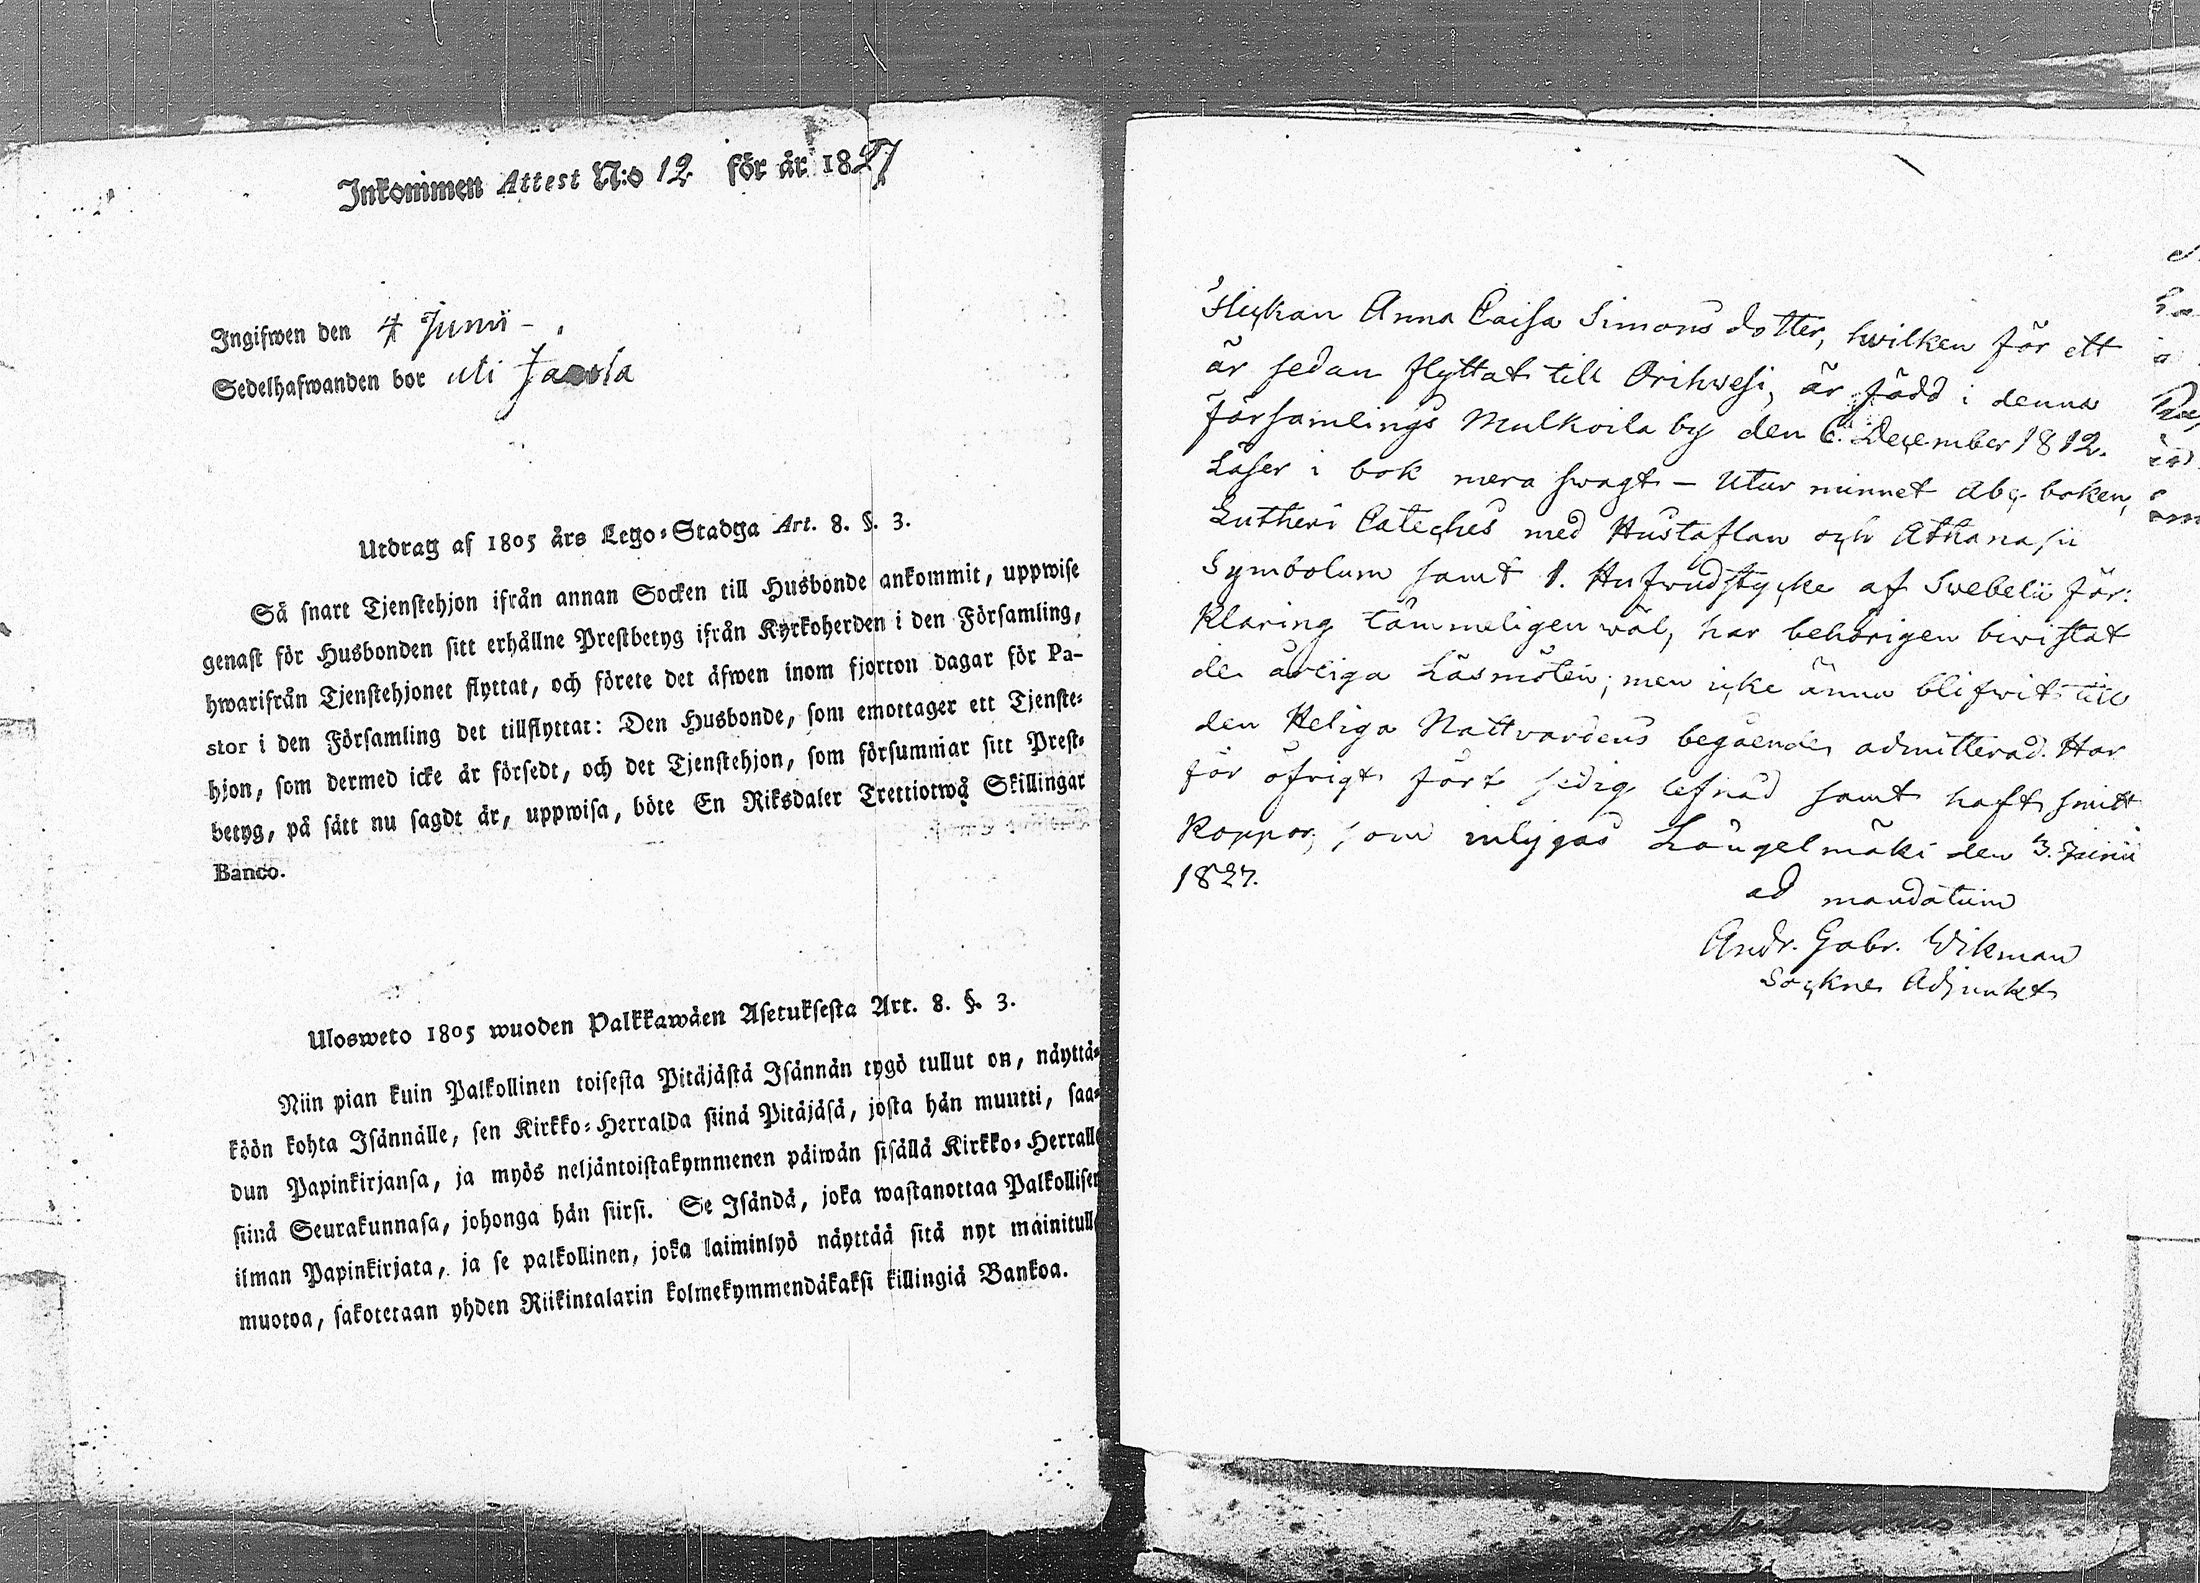 Inkommen Attest N:o 12 för år 1827
Ingifwen den 4 Junii - .
Sedelhafwanden bor uti
Utdrag af 1805 års Lego-Stadga Art. 8. §. 3.
Så snart Tjenstehjon ifrån annan Socken till Husbonde ankommit, uppwise
genast för Husbonden sitt erhållne Prestbetyg ifrån Kyrkoherden i den Församling,
hwarifrån Tjenstehjonet flyttat, och förete det äfwen inom fjorton dagar för Pa-
stor i den Församling det tillflyttat: Den Husbonde, som emottager ett Tjenste-
hjon, som dermed icke är försedt, och det Tjenstehjon, som försummar sitt Prest-
betyg, på sätt nu sagdt är, uppwisa, böte En Riksdaler Trettiotwå Skillingar
Banco.
Ulosweto 1805 wuoden Palkkawäen Asetuksesta Art. 8. §. 3.
Niin pian kuin Palkollinen toisesta Pitäjästä Isännän tygö tullut on, näyttä-
köön kohta Isännälle, sen Kirkko-Herralda siinä Pitäjäsä, josta hän muutti, saa-
dun Papinkirjansa, ja myös neljäntoistakymmenen päiwän sisällä Kirkko-Herralle
siinä Seurakunnasa, johonga hän siirsi. Se Isändä, joka wastanottaa Palkollisen
ilman Papinkirjata, ja se palkollinen, joka laiminlyö näyttää sitä nyt mainitulla
muotoa, sakotetaan yhden Riikintalarin kolmekymmendäkaksi killingiä Bankoa.
Flickan Anna Caisa Simons dotter, hwilken för ett
år sedan flyttat till Orihwesi, är född i denna
församlings Mulkoila by den 6. December 1812.
Läser i bok mera swagt - Utur minnet Abc boken,
Lutheri Cateches med Hustaflan och Athanasii
Symbolum samt 1. Hufwudstycke af Swebelii för:
klaring tämmeligen wäl, har behörigen biwistat
de årliga Läsmöten; men icke ännu blifwit till
den Heliga Nattvardens begående admitterad. Har
för öfrigt fört sedig lefnad samt haft smitt
Koppor, som intygas Längelmäki den 3. Junii
1827.
ad mandatum
Andr. Gabr. Wikman
Sockne Adjunkt